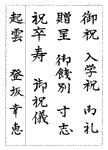 御祝 入学祝 御礼
贈呈 御餞別 寸志
祝卒寿 御祝儀
起雲 登坂幸恵